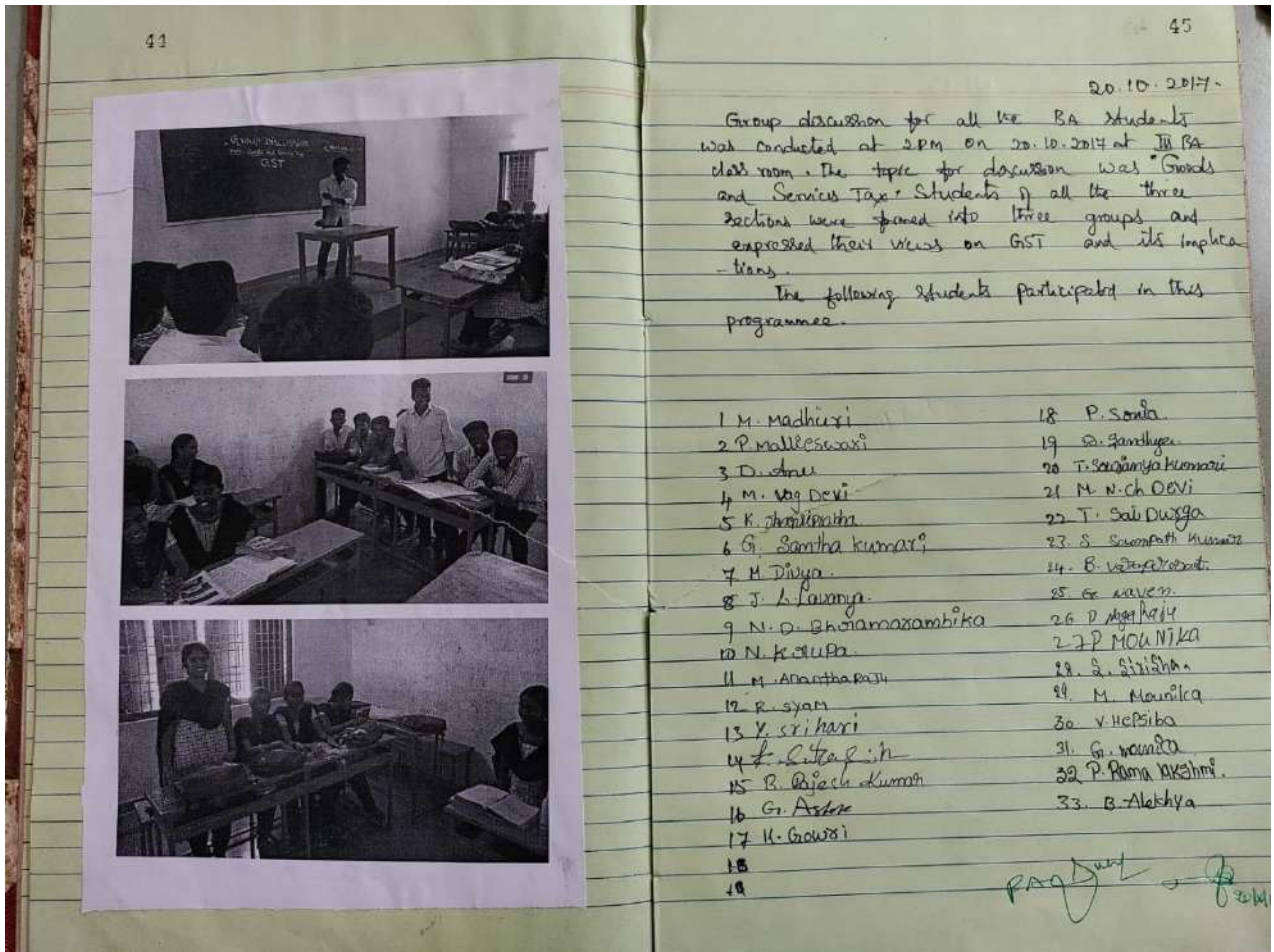 44
GROUP DISCUSSION
GST
45
20.10.2017.
Group discussion for all the BA students
was conducted at 2PM on 20.10.2017 at III BA
class room. The topic for discussion was "Goods
and Services Tax. Students of all the three
sections were formed into three groups and
expressed their views on GST and its implica
-tions.
The following students participated in this
programmee.
1 M. Madhuri
2 P. Malleswari
3 D. Anu
4 M. Vag Devi
5 K.
6 G. Santha kumari
7 M. Divya.
8 J. L. Lavanya.
9 N. D. Bhramarambika
10 N. Krupa.
11 M. Anantha Raju
12 R. Syam
13 Y. Srihari
14
15 B. Rajesh Kumar
16 G. Ashok
17 K. Gowri
18
19
18 P. Sonia
19 Sandhya
20 T. Sowjanya Kumari
21 M. N. Ch Devi
22 T. Sai Durga
23. S. Sampath Kumar
24. B.
25. G. Naven
26 D Nagaraju
27 P MOUNIKA
28. S. Sirisha
29. M. Mounika
30 V. Hepsiba
31. G. Mounika
32 P. Rama lakshmi.
33. B. Alekhya